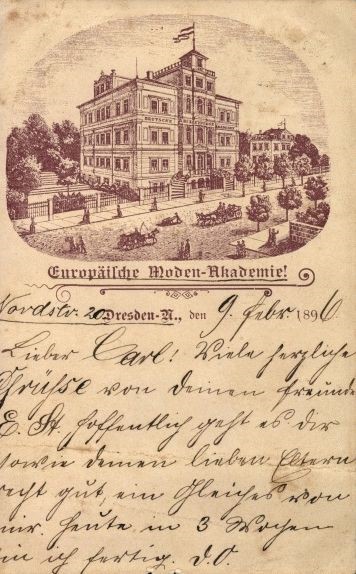 DEUTSCHE
Europäische Moden-Akademie!
Nordstr. 20 Dresden-N., den 9. Febr 1896.
Lieber Carl! Viele herzliche
Grüsse von deinem freunde
E. St. hoffentlich geht es dir
sowie deinen lieben Eltern
recht gut, ein Gleiches von
mir. heute in 3 Wochen
bin ich fertig. d. O.